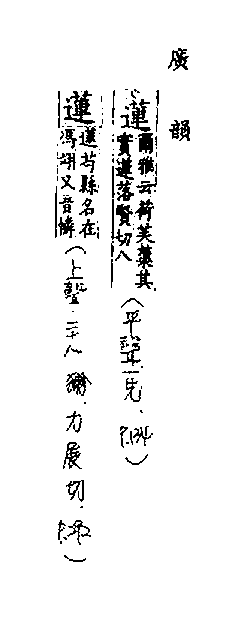 廣韻
蓮爾雅云荷芙蕖其實蓮落賢切八(平聲一先,P.134)
蓮蓮芍縣名在馮翊又音憐(上聲.二十八獮.力展切.P.292)